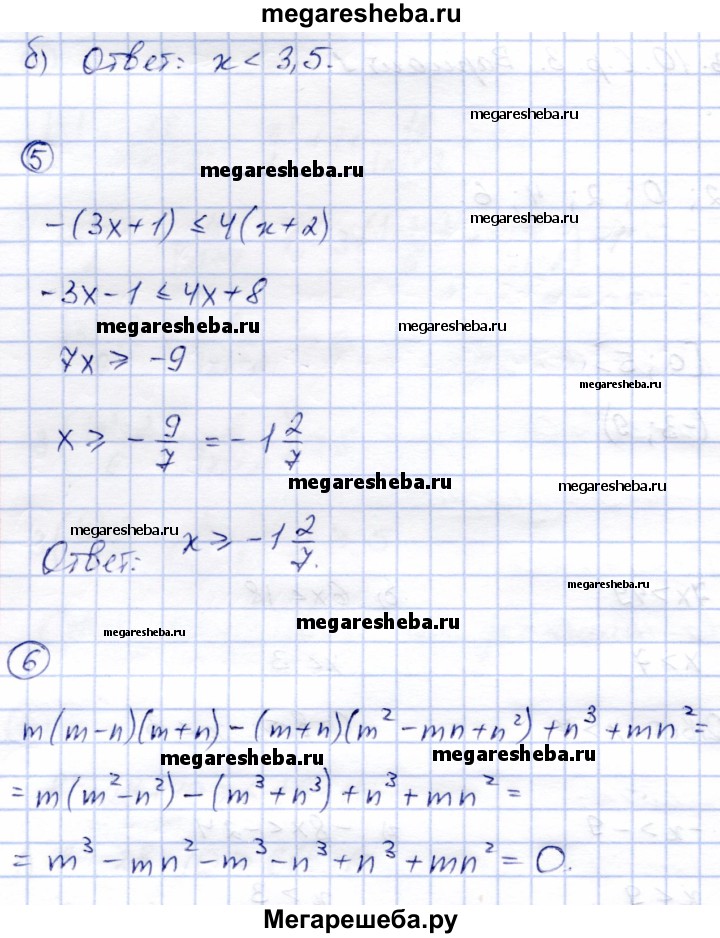 megaresheba.ru
б) Ответ: x < 3,5.
megaresheba.ru
5
megaresheba.ru
-(3x+1) ≤ 4(x+2)
megaresheba.ru
-3x-1 ≤ 4x+8
megaresheba.ru
megaresheba.ru
7x ≥ -9
megaresheba.ru
x ≥ -9/7 = -1 2/7
megaresheba.ru
megaresheba.ru
megaresheba.ru
Ответ: x ≥ -1 2/7.
megaresheba.ru
megaresheba.ru
megaresheba.ru
6
m(m-n)(m+n) - (m+n)(m² - mn+n²) + n³ + mn² =
megaresheba.ru
megaresheba.ru
= m(m²-n²) - (m³+n³) + n³ + mn² =
= m³ - mn² - m³ - n³ + n³ + mn² = 0.
Мегарешеба.ру